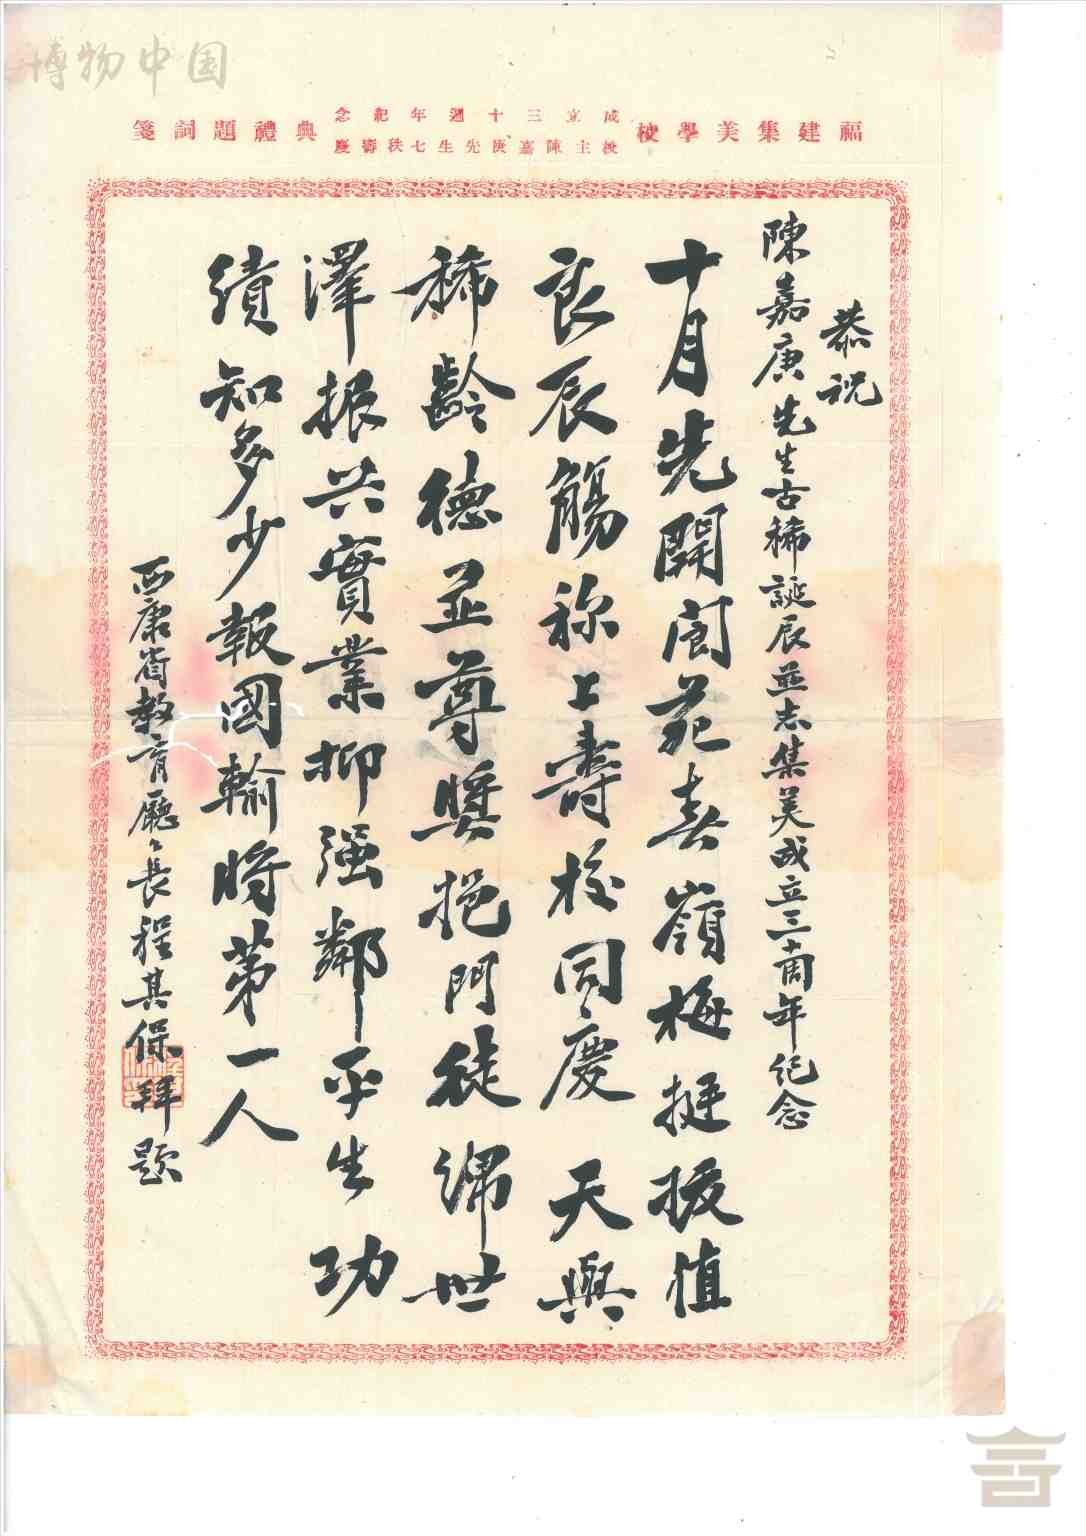 博物中国
福建集美學校
成立三十週年紀念
校主陳嘉庚先生七秩壽慶
典禮題詞箋
恭祝
陳嘉庚先生古稀誕辰並志集美成立三十周年纪念
十月先開閬苑春嶺梅挺拔值
良辰觴称上壽校同慶天與
稀齡德並尊獎挹門徒綿世
澤振兴實業抑强鄰平生功
績知多少報國輸將第一人
西康省教育廳々長程其保拜題